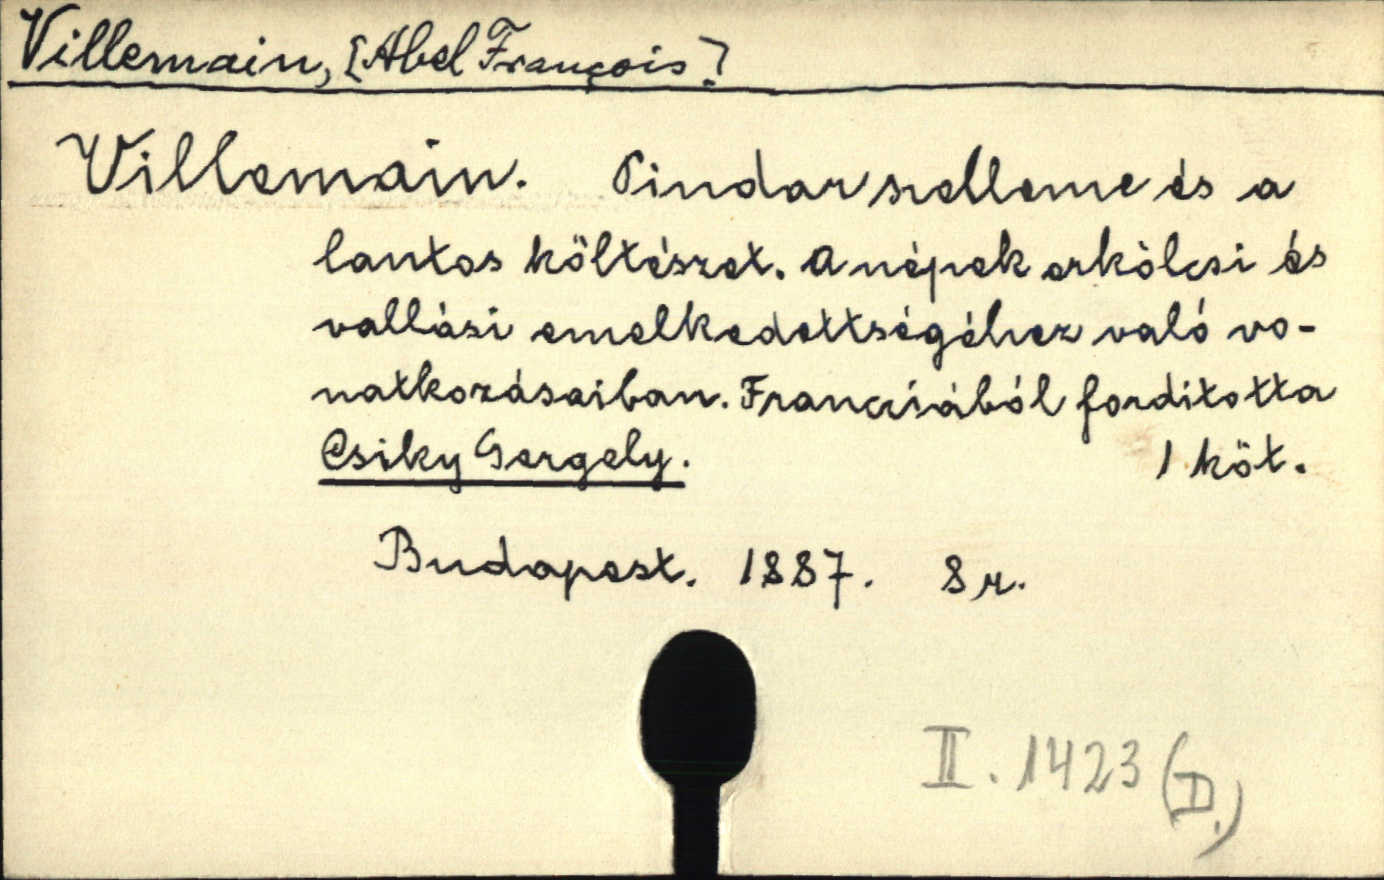 Villemain, [Abel François]
Villemain. Pindar szelleme és a
lantos költészet. A népek erkölcsi és
vallási emelkedettségéhez való vo-
natkozásaiban. Francziából forditotta
Csiky Gergely. 1 köt.
Budapest. 1887. 8 r.
II. 1423 (D.)